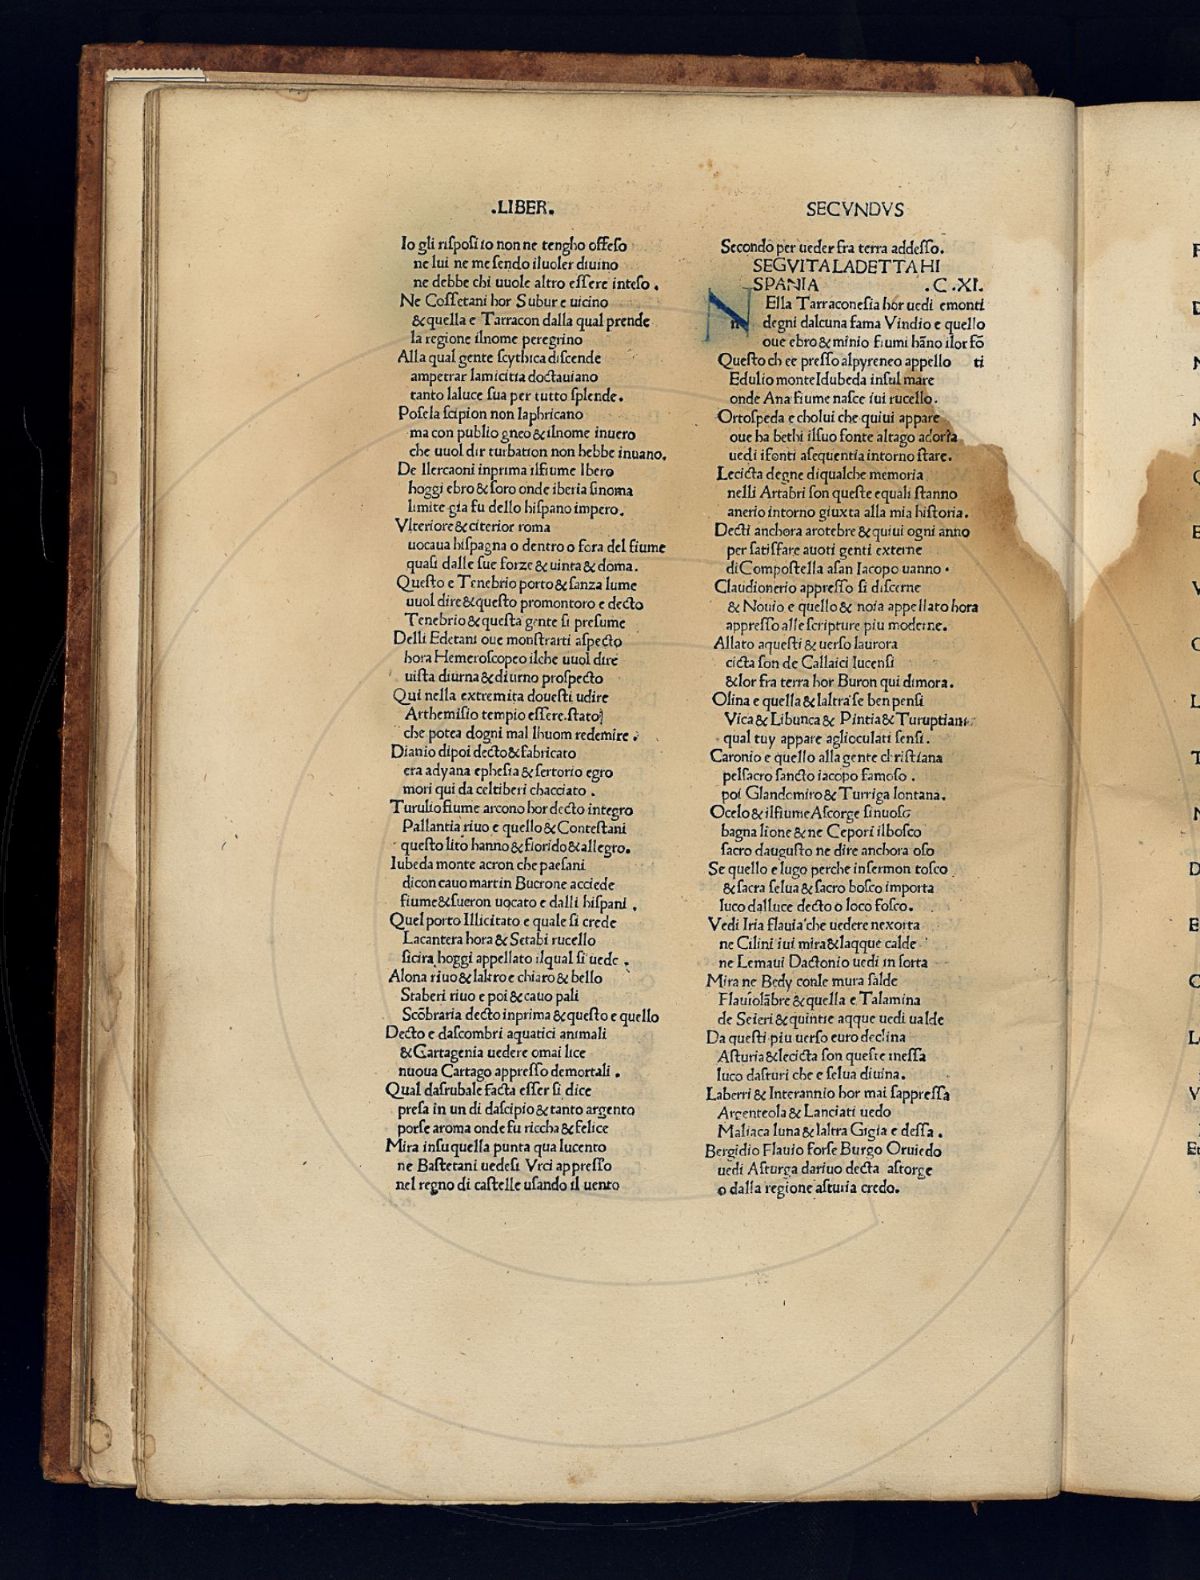 .LIBER.
Io gli risposi io non ne tengho offeso
ne lui ne me sendo iluoler diuino
ne debbe chi uuole altro essere inteso .
Ne Cossetani hor Subur e uicino
& quella e Tarracon dalla qual prende
la regione ilnome peregrino
Alla qual gente scythica discende
ampetrar lamicitia doctauiano
tanto laluce sua per tutto splende .
Posela scipion non laphricano
ma con publio gneo & ilnome inuero
che uuol dir turbation non hebbe inuano .
De Ilercaoni inprima ilfiume Ibero
hoggi ebro & soro onde iberia sinoma
limite gia fu dello hispano impero .
Vlteriore & citerior roma
uocaua hispagna o dentro o fora del fiume
quasi dalle sue forze & uinta & doma .
Questo e Tenebrio porto & sanza lume
uuol dire & questo promontoro e decto
Tenebrio & questa gente si presume
Delli Edetani oue monstrarti aspecto
hora Hemeroscopeo ilche uuol dire
uista diurna & diurno prospecto
Qui nella extremita douesti udire
Arthemisio tempio essere stato
che potea dogni mal lhuom redemire .
Dianio dipoi decto & fabricato
era adyana ephesia & sertorio egro
mori qui da celtiberi chacciato .
Turulio fiume arcono hor decto integro
Pallantia riuo e quello & Contestani
questo lito hanno & florido & allegro .
Iubeda monte acron che paesani
dicon cauo martin Bucrone acciede
fiume & fueron uocato e dalli hispani .
Quel porto Illicitato e quale si crede
Lacantera hora & Setabi rucello
sicira hoggi appellato ilqual si uede .
Alona riuo & laltro e chiaro & bello
Staberi riuo e poi & cauo pali
Scōbraria decto inprima & questo e quello
Decto e dascombri aquatici animali
& Cartagenia uedere omai lice
nuoua Cartago appresso demortali .
Qual dasrubale facta esser si dice
presa in un di dascipio & tanto argento
porse aroma onde fu riccha & felice
Mira insu quella punta qua lucento
ne Bastetani uedesi Vrci appresso
nel regno di castelle usando il uento
SECVNDVS
Secondo per ueder fra terra addesso .
SEGVITA LADETTA HI
SPANIA .C .XI.
N Ella Tarraconesia hor uedi emonti
n degni dalcuna fama Vindio e quello
oue ebro & minio fiumi hāno ilor fō
Questo ch ee presso alpyreneo appello ti
Edulio monte Idubeda insul mare
onde Ana fiume nasce iui rucello .
Ortospeda e cholui che quiui appare
oue ha bethi ilsuo fonte altago adorta
uedi ifonti asequentia intorno stare .
Lecicta degne diqualche memoria
nelli Artabri son queste equali stanno
anerio intorno giuxta alla mia historia .
Decti anchora arotebre & quiui ogni anno
per satisfare auoti genti externe
di Compostella asan Iacopo uanno .
Claudionerio appresso si discerne
& Nouio e quello & noia appellato hora
appresso alle scripture piu moderne .
Allato aquesti & uerso laurora
cicta son de Callaici lucensi
& lor fra terra hor Buron qui dimora .
Olina e quella & laltra se ben pensi
Vica & Libunca & Pintia & Turuptiana
qual tuy appare aglioculati sensi .
Caronio e quello alla gente christiana
pelsacro sancto iacopo famoso .
poi Glandomiro & Turriga lontana .
Ocelo & ilfiume Ascorge sinuoso
bagna lione & ne Cepori ilbosco
sacro daugusto ne dire anchora oso
Se quello e lugo perche insermon tosco
& sacra selua & sacro bosco importa
luco dalluce decto o loco fosco .
Vedi Iria flauia che uedere nexorta
ne Cilini iui mira & laqque calde
ne Lemaui Dactonio uedi in sorta
Mira ne Bedy conle mura salde
Flauiolābre & quella e Talamina
de Seieri & quintie aqque uedi ualde
Da questi piu uerso euro declina
Asturia & lecicta son queste messa
luco dasturi che e selua diuina .
Laberri & Interannio hor mai sappressa
Argenteola & Lanciati uedo
Maliaca luna & laltra Gigia e dessa .
Bergidio Flauio forse Burgo Oruiedo
uedi Asturga dariuo decta astorge
o dalla regione asturia credo .